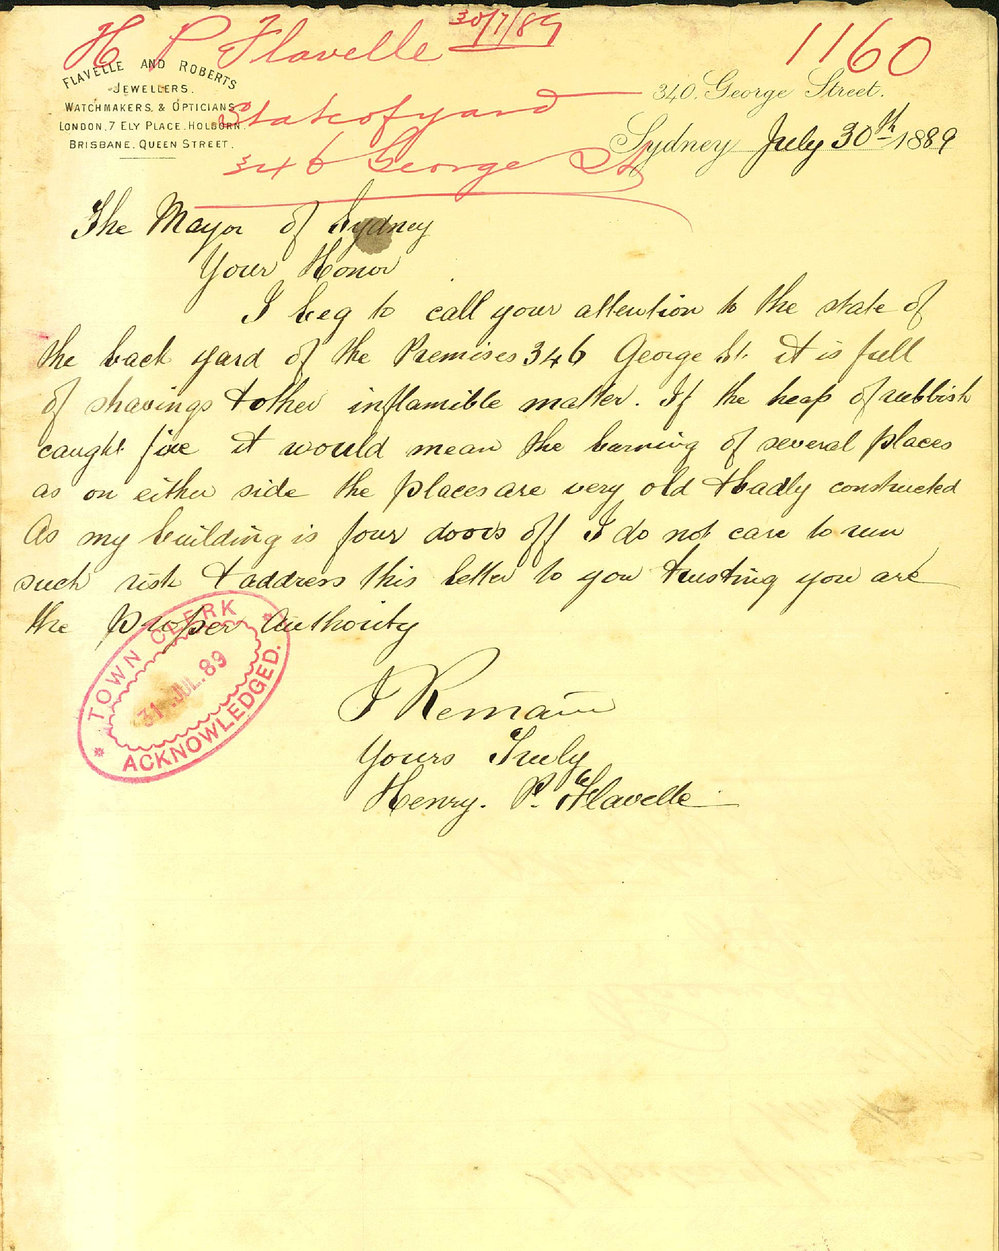 H P Flavelle 30/7/89
1160
FLAVELLE AND ROBERTS
JEWELLERS.
WATCHMAKERS, & OPTICIANS
LONDON, 7 ELY PLACE. HOLBORN.
BRISBANE. QUEEN STREET.
State of yard
346 George St
340. George Street.
Sydney July 30th 1889
The Mayor of Sydney
Your Honor
I beg to call your attention to the state of
the back yard of the Premises 346 George St. it is full
of shavings & other inflamible matter. If the heap of rubbish
caught fire it would mean the burning of several places
as on either side the places are very old & badly constructed
As my building is four doors off I do not care to run
such risk & address this letter to you trusting you are
the proper authority
I Remain
Yours Truly
Henry. P. Flavelle
TOWN CLERK
31 JUL. 89
ACKNOWLEDGED.